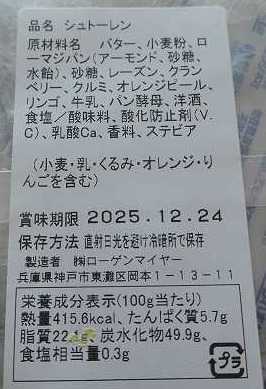 品名 シュトーレン
原材料名 バター、小麦粉、ロ
ーマジパン(アーモンド、砂糖、
水飴)、砂糖、レーズン、クラン
ベリー、クルミ、オレンジピール、
リンゴ、牛乳、パン酵母、洋酒、
食塩/酸味料、酸化防止剤(V.
C)、乳酸Ca、香料、ステビア
(小麦・乳・くるみ・オレンジ・り
んごを含む)
賞味期限 2025.12.24
保存方法 直射日光を避け冷暗所で保存
製造者 ㈱ローゲンマイヤー
兵庫県神戸市東灘区岡本1-13-11
栄養成分表示(100g当たり)
熱量415.6kcal、たんぱく質5.7g
脂質22.1g、炭水化物49.9g、
食塩相当量0.3g
プラ